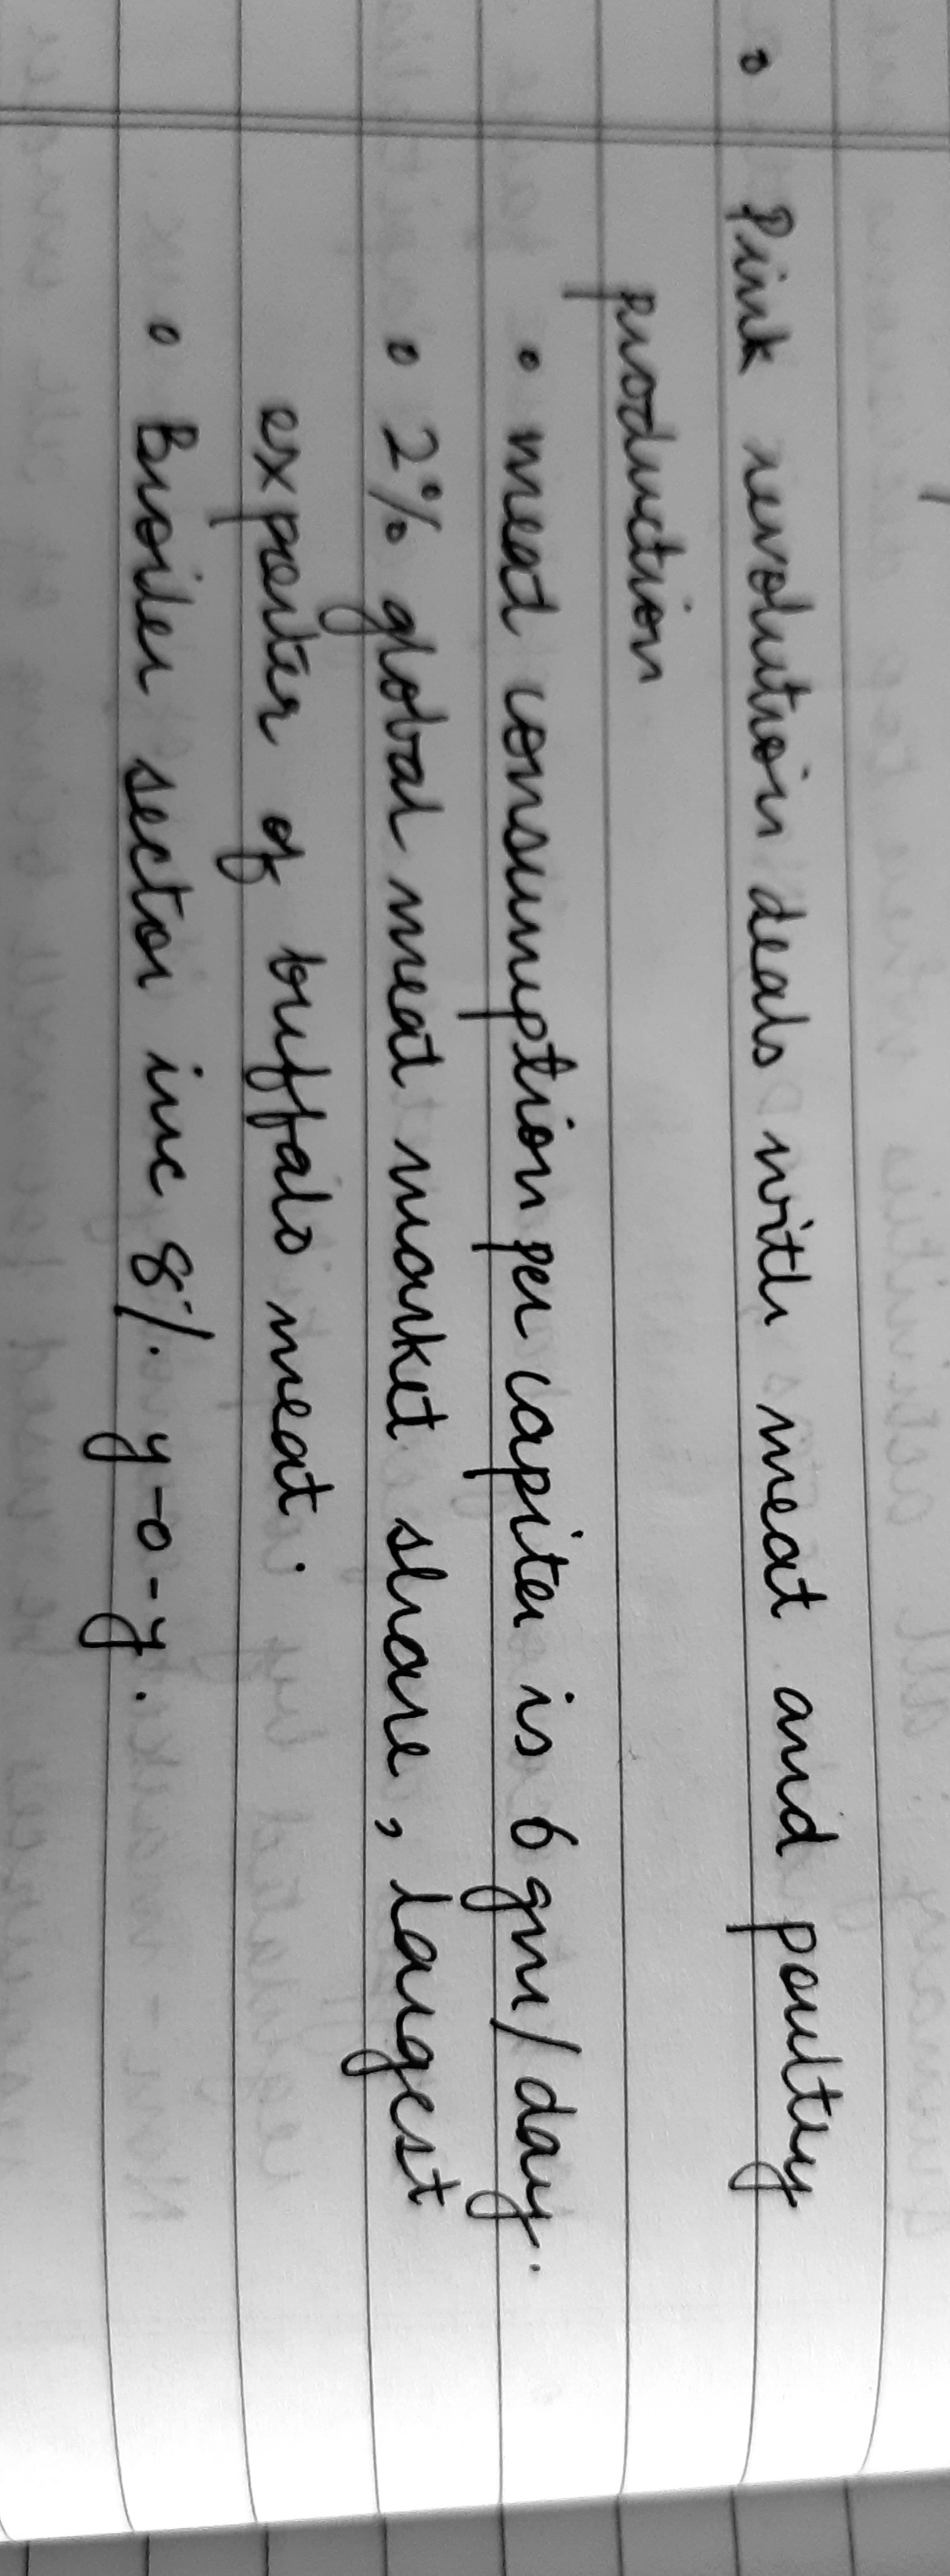 • Pink revolution deals with meat and poultry
production
• meat consumption per capita is 6 gm/day.
• 2% global meat market share, largest
exporter of buffalo meat.
• Broiler sector inc 8% y-o-y.